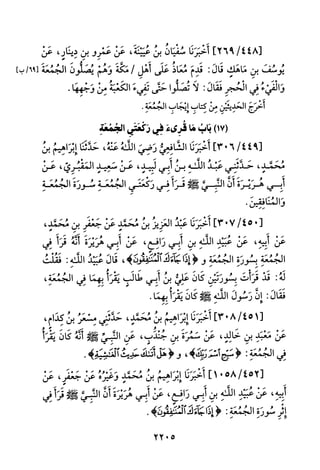 [٢٦٩/٤٤٨] أَخْبَرَنَا سُفْيَانُ بنُ عُيَيْنَةَ، عَنْ عَمْرِو بنِ دِينَارٍ، عَنْ
يُوسُفَ بنِ مَاهَكٍ قَالَ: قَدِمَ مُعَاذٌ عَلَى أَهْلِ / مَكَّةَ وَهُمْ يُصَلُّونَ الجُمُعَةَ [٦٩/ب]
وَالْفَيْءُ فِي الْحُجرِ فَقَالَ: لَا تُصَلُّوا حَتَّى تَفِيءَ الكَعْبَةُ مِنْ وَجْهِهَا.
أَخْرَجَ الحَدِيثَيْنِ مِنْ كِتَابِ إِيْجَابِ الجُمُعَةِ.
(١٧) بَابُ مَا قُرِىءَ فِي رَكْعَتَيِ الجُمُعَةِ
[٣٠٦/٤٤٩] أَخْبَرَنَا الشَّافِعِيُّ رَضِيَ اللَّهُ عَنْهُ، حَدَّثَنَا إِبْرَاهِيمُ بنُ
مُحَمَّدٍ، حَدَّثَنِي عَبْدُ اللَّهِ بنُ أَبِي لَبِيدٍ، عَنْ سَعِيدٍ المَقْبُرِيِّ، عَنْ
أَبِي هُرَيْرَةَ أَنَّ النَّبِيَّ ﷺ قَرَأَ فِي رَكْعَتَيِ الجُمُعَةِ سُورَةَ الجُمُعَةِ
وَالمُنَافِقِينَ.
[٣٠٧/٤٥٠] أَخْبَرَنَا عَبْدُ العَزِيزِ بنُ مُحَمَّدٍ عَنْ جَعْفَرِ بنِ مُحَمَّدٍ،
عَنْ أَبِيهِ، عَنْ عُبَيْدِ اللَّهِ بنِ أَبِي رَافِعٍ، عَنْ أَبِي هُرَيْرَةَ أَنَّهُ قَرَأَ فِي
الجُمُعَةِ بِسُورَةِ الجُمُعَةِ و ﴿إِذَا جَآءَكَ ٱلْمُنَٰفِقُونَ﴾، قَالَ عُبَيْدُ اللَّهِ: فَقُلْتُ
لَهُ: قَدْ قَرَأْتَ بِسُورَتَيْنِ كَانَ عَلِيُّ بنُ أَبِي طَالِبٍ يَقْرَأُ بِهِمَا فِي الجُمُعَةِ،
فَقَالَ: إِنَّ رَسُولَ اللَّهِ ﷺ كَانَ يَقْرَأُ بِهِمَا.
[٣٠٨/٤٥١] أَخْبَرَنَا إِبْرَاهِيمُ بنُ مُحَمَّدٍ، حَدَّثَنِي مِسْعَرُ بنُ كِدَامٍ،
عَنْ مَعْبَدِ بنِ خَالِدٍ، عَنْ سَمُرَةَ بنِ جُنْدُبٍ، عَنِ النَّبِيِّ ﷺ أَنَّهُ كَانَ يَقْرَأُ
فِي الجُمُعَةِ: ﴿سَبِّحِ ٱسْمَ رَبِّكَ﴾، و ﴿هَلْ أَتَىٰكَ حَدِيثُ ٱلْغَٰشِيَةِ﴾.
[١٠٥٨/٤٥٢] أَخْبَرَنَا إِبْرَاهِيمُ بنُ مُحَمَّدٍ وَغَيْرُهُ عَنْ جَعْفَرٍ، عَنْ
أَبِيهِ، عَنْ عُبَيْدِ اللَّهِ بنِ أَبِي رَافِعٍ، عَنْ أَبِي هُرَيْرَةَ أَنَّ النَّبِيَّ ﷺ قَرَأَ فِي
إِثْرِ سُورَةِ الجُمُعَةِ: ﴿إِذَا جَآءَكَ ٱلْمُنَٰفِقُونَ﴾.
٢٢٠٥